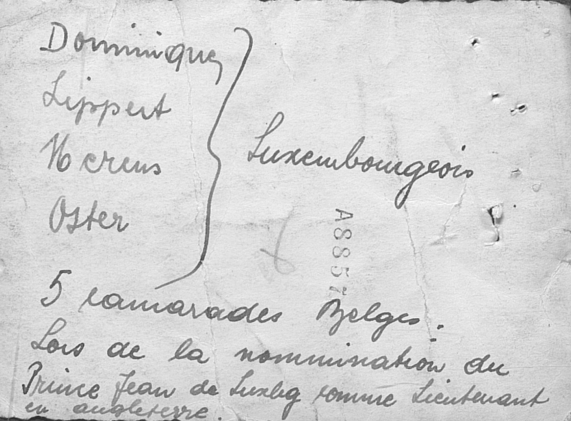 Dominique
Lippert
Luxembourgeois
Oster
A8857
5 camarades Belges.
Lors de la nommination du
Prince Jean de Luxbg comme Lieutenant
en angleterre.